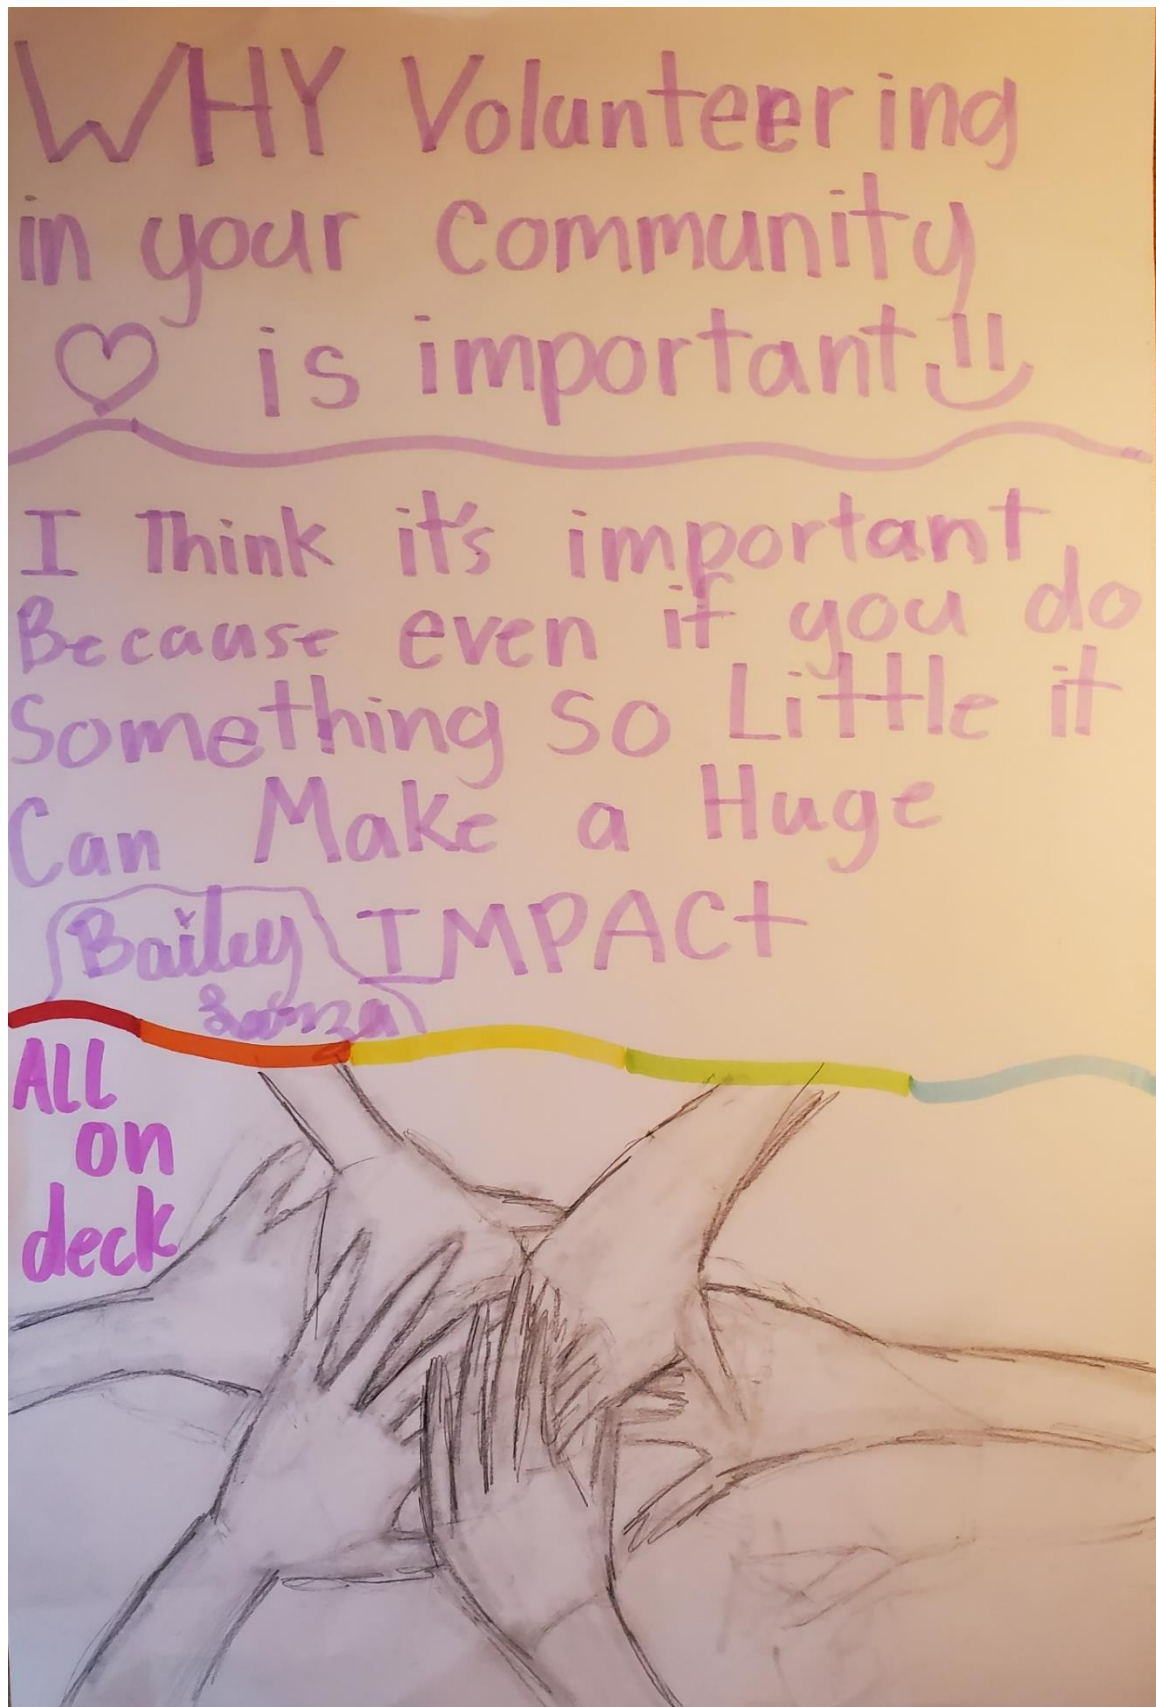 WHY Volunteering
in your community
is important
I Think it's important
Because even if you do
Something so Little it
Can Make a Huge
IMPACt
Bailey
ALL
on
deck